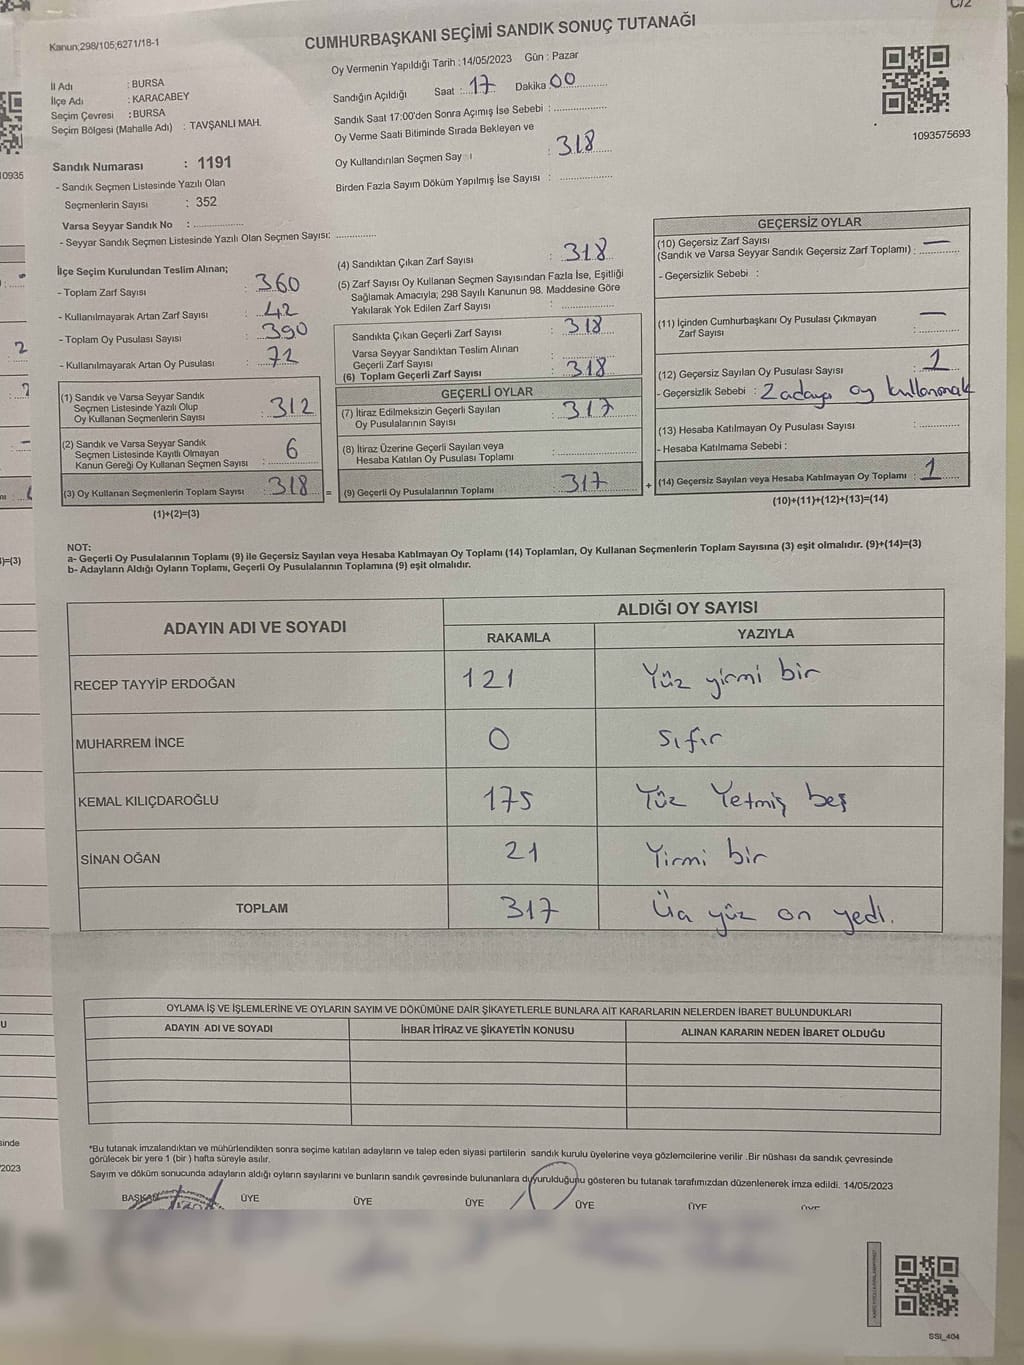 C/2
Kanun;298/105;6271/18-1
CUMHURBAŞKANI SEÇİMİ SANDIK SONUÇ TUTANAĞI
İl Adı : BURSA
İlçe Adı : KARACABEY
Seçim Çevresi : BURSA
Seçim Bölgesi (Mahalle Adı) : TAVŞANLI MAH.
Oy Vermenin Yapıldığı Tarih : 14/05/2023 Gün : Pazar
Sandığın Açıldığı Saat : 17 Dakika 00
Sandık Saat 17:00'den Sonra Açımış İse Sebebi :
Oy Verme Saati Bitiminde Sırada Bekleyen ve
Oy Kullandırılan Seçmen Say ı : 318
Birden Fazla Sayım Döküm Yapılmış İse Sayısı :
1093575693
Sandık Numarası : 1191
- Sandık Seçmen Listesinde Yazılı Olan
Seçmenlerin Sayısı : 352
Varsa Seyyar Sandık No :
- Seyyar Sandık Seçmen Listesinde Yazılı Olan Seçmen Sayısı:
İlçe Seçim Kurulundan Teslim Alınan;
- Toplam Zarf Sayısı : 360
- Kullanılmayarak Artan Zarf Sayısı : 42
- Toplam Oy Pusulası Sayısı : 390
- Kullanılmayarak Artan Oy Pusulası : 72
(1) Sandık ve Varsa Seyyar Sandık
Seçmen Listesinde Yazılı Olup
Oy Kullanan Seçmenlerin Sayısı : 312
(2) Sandık ve Varsa Seyyar Sandık
Seçmen Listesinde Kayıtlı Olmayan
Kanun Gereği Oy Kullanan Seçmen Sayısı : 6
(3) Oy Kullanan Seçmenlerin Toplam Sayısı : 318
(1)+(2)=(3)
(4) Sandıktan Çıkan Zarf Sayısı : 318
(5) Zarf Sayısı Oy Kullanan Seçmen Sayısından Fazla İse, Eşitliği
Sağlamak Amacıyla; 298 Sayılı Kanunun 98. Maddesine Göre
Yakılarak Yok Edilen Zarf Sayısı :
Sandıkta Çıkan Geçerli Zarf Sayısı : 318
Varsa Seyyar Sandıktan Teslim Alınan
Geçerli Zarf Sayısı :
(6) Toplam Geçerli Zarf Sayısı : 318
GEÇERLİ OYLAR
(7) İtiraz Edilmeksizin Geçerli Sayılan
Oy Pusulalarının Sayısı : 317
(8) İtiraz Üzerine Geçerli Sayılan veya
Hesaba Katılan Oy Pusulası Toplamı :
= (9) Geçerli Oy Pusulalarının Toplamı : 317
GEÇERSİZ OYLAR
(10) Geçersiz Zarf Sayısı
(Sandık ve Varsa Seyyar Sandık Geçersiz Zarf Toplamı) : —
- Geçersizlik Sebebi :
(11) İçinden Cumhurbaşkanı Oy Pusulası Çıkmayan
Zarf Sayısı : —
(12) Geçersiz Sayılan Oy Pusulası Sayısı : 1
- Geçersizlik Sebebi : 2 adaya oy kullanmak
(13) Hesaba Katılmayan Oy Pusulası Sayısı :
- Hesaba Katılmama Sebebi :
+ (14) Geçersiz Sayılan veya Hesaba Katılmayan Oy Toplamı : 1
(10)+(11)+(12)+(13)=(14)
NOT:
a- Geçerli Oy Pusulalarının Toplamı (9) ile Geçersiz Sayılan veya Hesaba Katılmayan Oy Toplamı (14) Toplamları, Oy Kullanan Seçmenlerin Toplam Sayısına (3) eşit olmalıdır. (9)+(14)=(3)
b- Adayların Aldığı Oyların Toplamı, Geçerli Oy Pusulalarının Toplamına (9) eşit olmalıdır.
ADAYIN ADI VE SOYADI ALDIĞI OY SAYISI
RAKAMLA YAZIYLA
RECEP TAYYİP ERDOĞAN 121 Yüz yirmi bir
MUHARREM İNCE 0 Sıfır
KEMAL KILIÇDAROĞLU 175 Yüz Yetmiş beş
SİNAN OĞAN 21 Yirmi bir
TOPLAM 317 Üç yüz on yedi.
OYLAMA İŞ VE İŞLEMLERİNE VE OYLARIN SAYIM VE DÖKÜMÜNE DAİR ŞİKAYETLERLE BUNLARA AİT KARARLARIN NELERDEN İBARET BULUNDUKLARI
ADAYIN ADI VE SOYADI İHBAR İTİRAZ VE ŞİKAYETİN KONUSU ALINAN KARARIN NEDEN İBARET OLDUĞU
*Bu tutanak imzalandıktan ve mühürlendikten sonra seçime katılan adayların ve talep eden siyasi partilerin sandık kurulu üyelerine veya gözlemcilerine verilir .Bir nüshası da sandık çevresinde
görülecek bir yere 1 (bir ) hafta süreyle asılır.
Sayım ve döküm sonucunda adayların aldığı oyların sayılarını ve bunların sandık çevresinde bulunanlara duyurulduğunu gösteren bu tutanak tarafımızdan düzenlenerek imza edildi. 14/05/2023
BAŞKAN ÜYE ÜYE ÜYE ÜYE ÜYE ÜYE
SSI_404